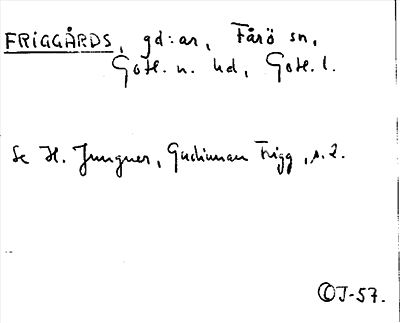 FRIGGÅRDS, gd:ar, Fårö sn,
Gotl. n. hd, Gotl. l.
Se H. Jungner, Gudinnan Frigg, s. 2.
OJ-57.